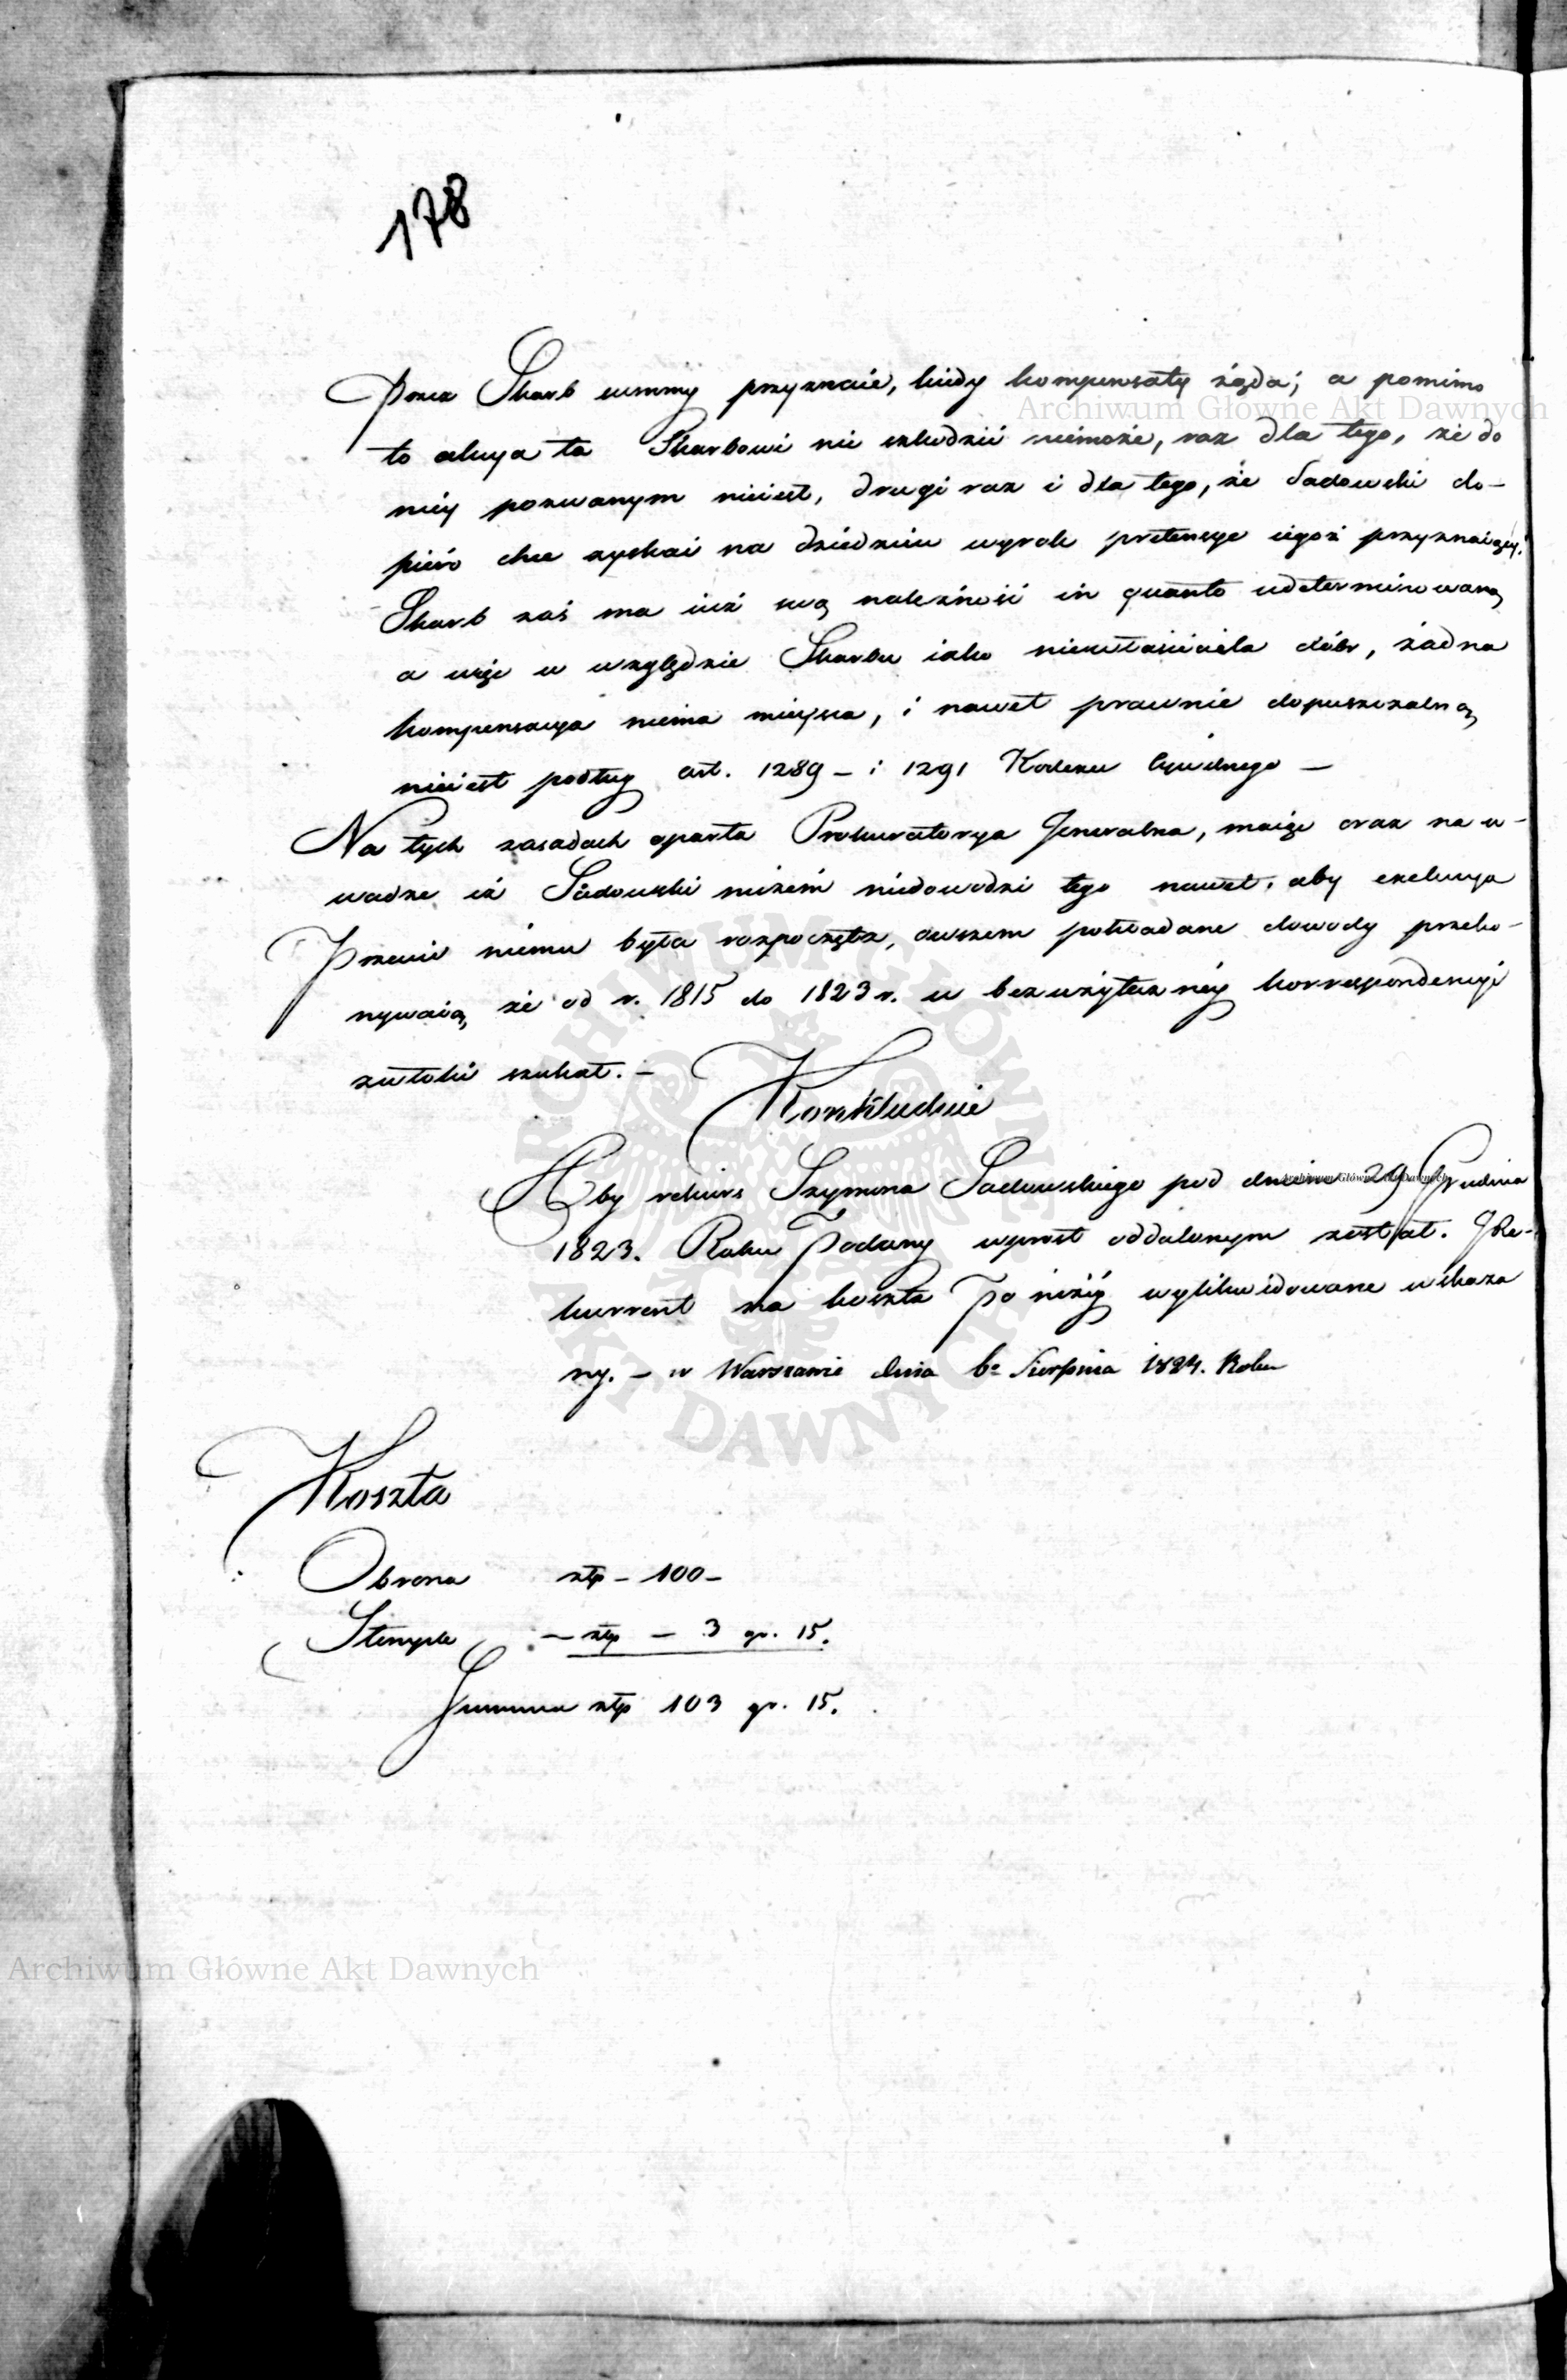 178
Przez Skarb summy przyznaie, kiedy kompensaty żąda; a pomimo
to akcya ta Skarbowi nie szkodzić niemoże, raz dla tego, że do
niéy pozwanym nieiest, drugi raz i dla tego, że Sadowski do-
piéro chce zyskać na dziedzicu wyrok pretensye iegoż przyznaiący,
Skarb zaś ma iuż swą należność in quanto udeterminowaną
a więc w względzie Skarbu iako niewłaściciela dóbr, żadna
kompensacya niema mieysca, i nawet prawnie dopuszczalną
nieiest podług art. 1289 – i 1291 Kodexu Cywilnego –
Na tych zasadach oparta Prokuratorya Jeneralna, maiąc oraz na u-
wadze iż Sadowski niczém niedowodzi tego nawet, aby exekucya
Przeciw niemu była rozpoczęta, owszem pokładane dowody przeko-
nywaią, że od r. 1815 do 1823 r. w bezużyteczney korrespondencyi
zwłoki szukał. –
Konkluduie
Aby rekurs Szymona Sadowskiego pod dniem 29 Grudnia
1823. Roku Podany wprost oddalonym został. I Re-
kurrent na koszta Poniżéy wylikwidowane wskaza
ny. – w Warszawie dnia 6º Sierpnia 1824. Roku
Koszta
Obrona złp – 100 –
Stemple – złp – 3 gr. 15.
Summa złp 103 gr. 15.
Archiwum Główne Akt Dawnych
Archiwum Główne Akt Dawnych
Archiwum Główne Akt Dawnych
ARCHIWUM GŁÓWNE AKT DAWNYCH